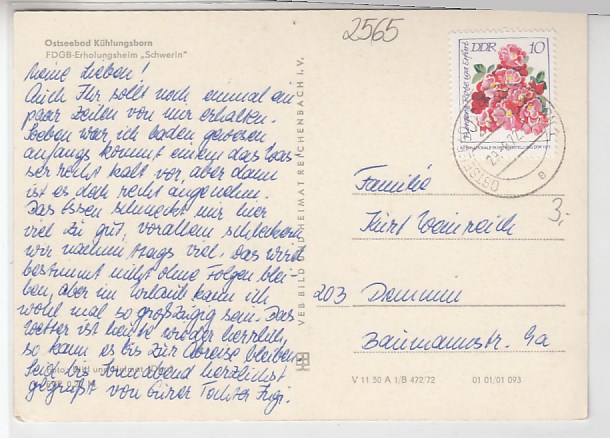 2565
Ostseebad Kühlungsborn
FDGB-Erholungsheim „Schwerin"
Meine Lieben!
Auch Ihr sollt noch einmal ein
paar Zeilen von mir erhalten.
Soeben war ich baden gewesen
anfangs kommt einem das Was-
ser recht kalt vor, aber dann
ist es doch recht angenehm.
Das Essen schmeckt mir hier
viel zu gut, vorallem schlecken
wir nachmittags viel. Das wird
bestimmt nicht ohne Folgen blei-
ben, aber im Urlaub kann ich
wohl mal so großzügig sein. Das
Wetter ist heute wieder herrlich,
so kann es bis zur Abreise bleiben.
Seid bis Sonnabend herzlichst
gegrüßt von Eurer Tochter
Foto: und
VEB BILD UND HEIMAT REICHENBACH I. V.
DDR 10
OSTSEEBAD
Familie
3,-
Kurt
203 Demmin
Baumannstr. 9a
V 11 50 A 1/B 472/72 01 01/01 093